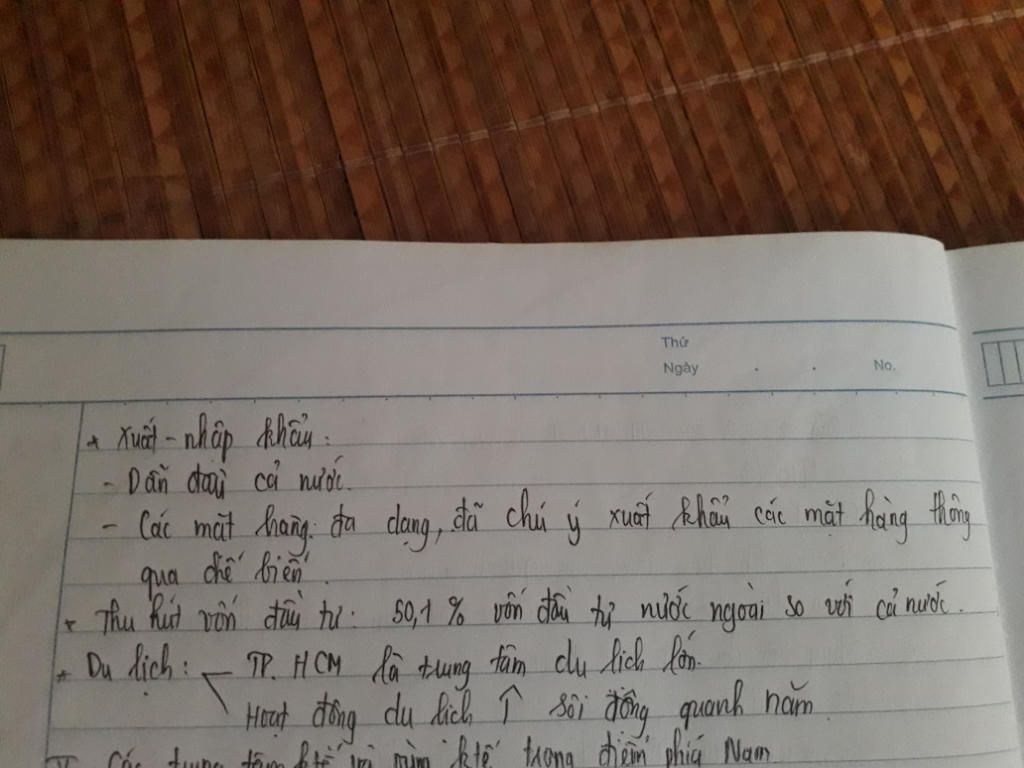 Thứ
Ngày . . No.
* Xuất - nhập khẩu:
- Dẫn đầu cả nước.
- Các mặt hàng: đa dạng, đã chú ý xuất khẩu các mặt hàng thông
qua chế biến.
* Thu hút vốn đầu tư: 50,1 % vốn đầu tư nước ngoài so với cả nước.
* Du lịch: TP. HCM là trung tâm du lịch lớn.
Hoạt động du lịch ↑ sôi động quanh năm.
V. Các trung tâm ktế và vùng ktế trọng điểm phía Nam